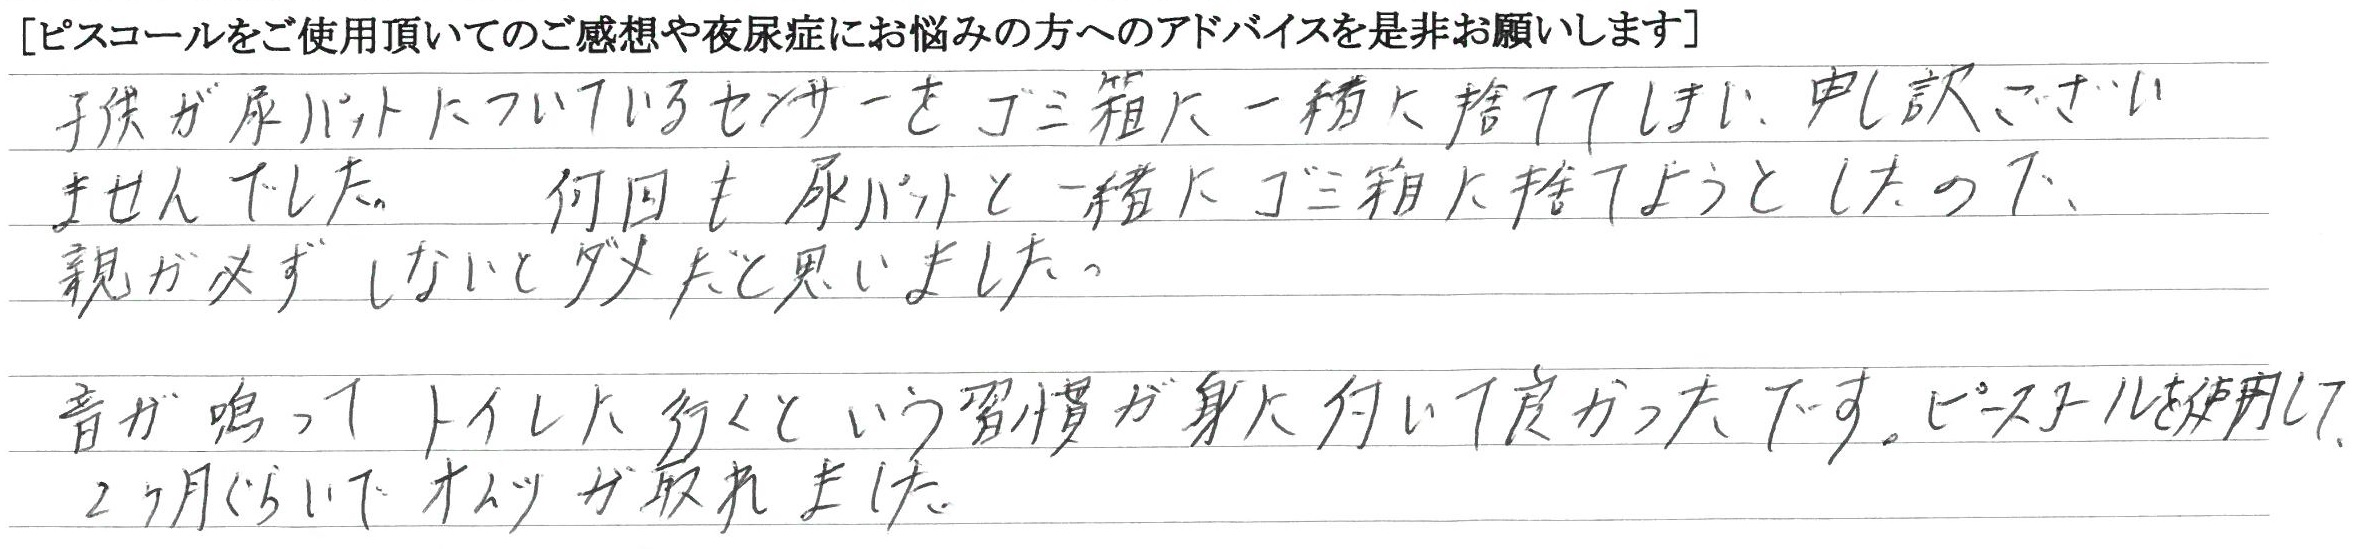 [ピスコールをご使用頂いてのご感想や夜尿症にお悩みの方へのアドバイスを是非お願いします]
子供が尿パットについているセンサーをゴミ箱に一緒に捨ててしまい、申し訳ござい
ませんでした。 何回も尿パットと一緒にゴミ箱に捨てようとしたので、
親が必ずしないとダメだと思いました。
音が鳴ってトイレに行くという習慣が身に付いて良かったです。ピースコールを使用して、
2ヶ月ぐらいでオムツが取れました。